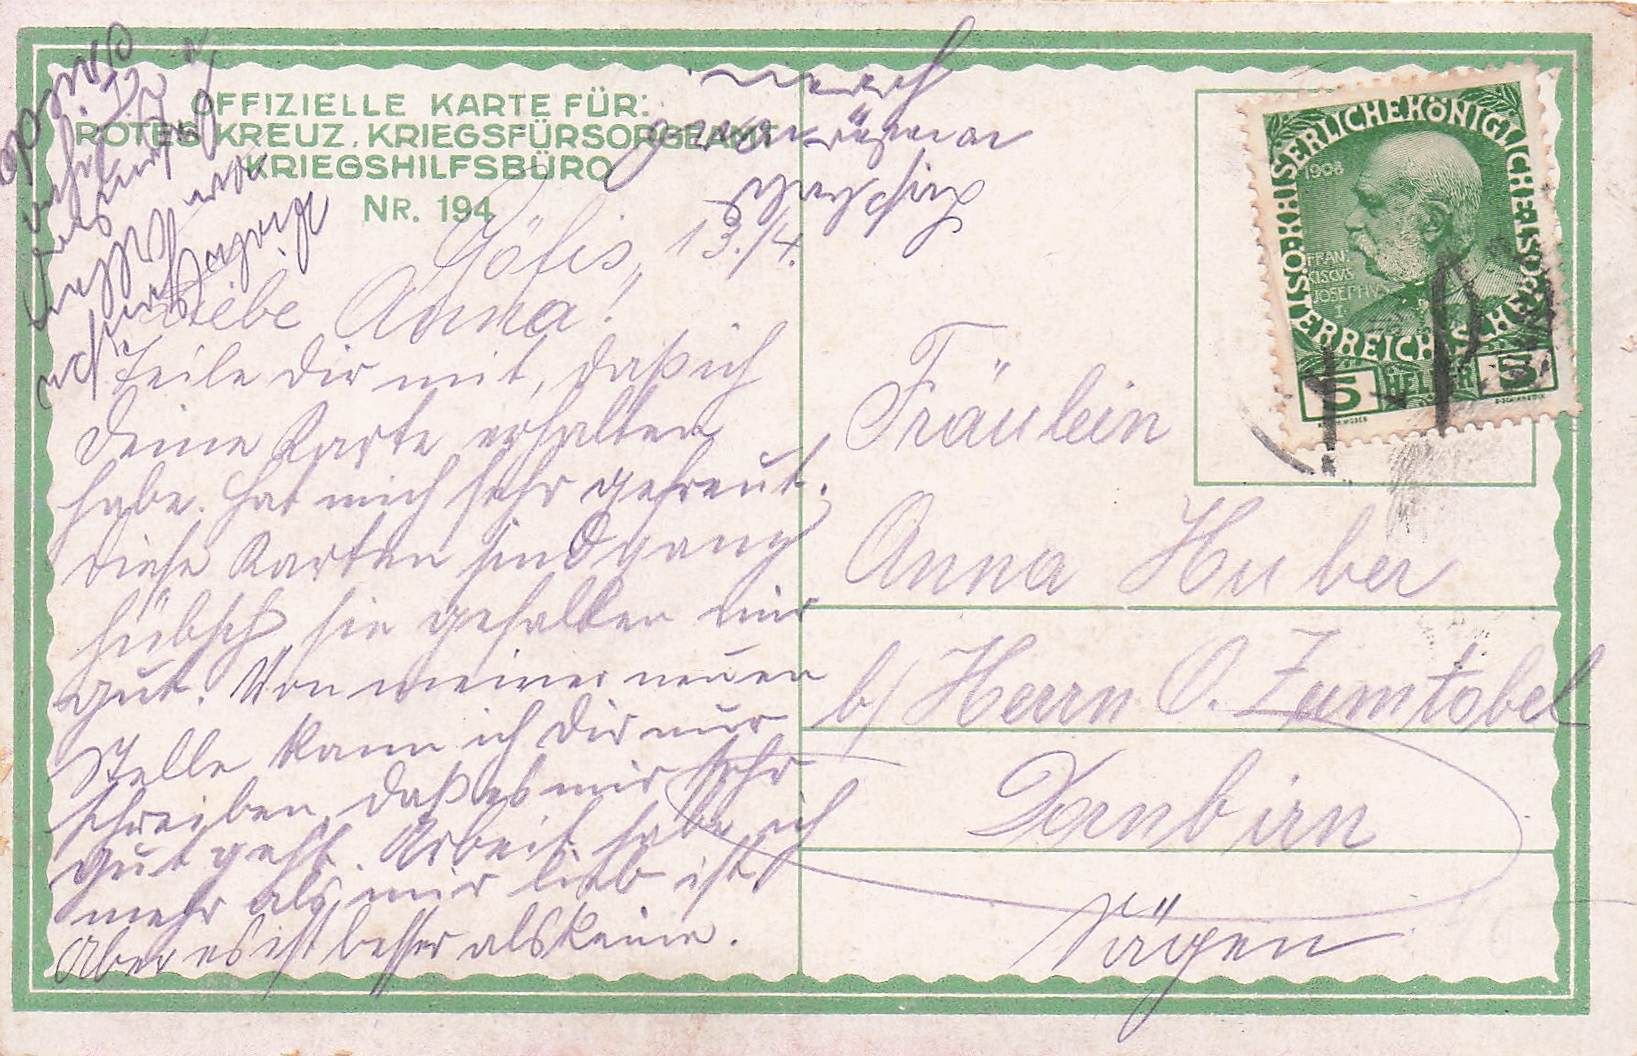 OFFIZIELLE KARTE FÜR:
ROTES KREUZ, KRIEGSFÜRSORGEAMT
KRIEGSHILFSBÜRO
NR. 194
Göfis, 13./4.
Liebe Anna!
Teile Dir mit, daß ich
deine Karte erhalten
habe. Hat mich sehr gefreut.
Diese Karten sind ganz
hübsch sie gefallen mir
gut. Von meiner neuen
Stelle kann ich Dir nur
schreiben, daß es mir sehr
gut geht. Arbeit habe ich
mehr als mir lieb ist,
Aber es ist besser als keine.
1908
KAISERLICHE KÖNIGLICHE
ÖSTERREICHISCHE
FRAN
CISCVS
JOSEPHVS
I
5 HELLER 5
Fräulein
Anna Huber
b/ Herrn O. Zumtobel
Dornbirn
Sägen